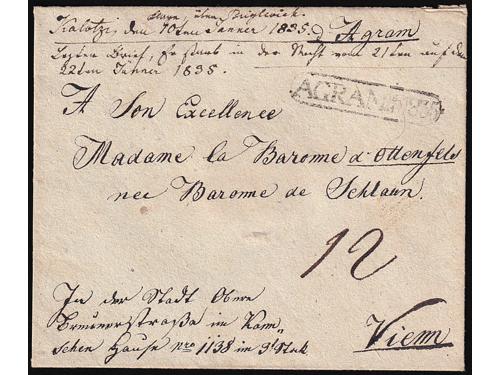 Kalotzi, den 10ten Jänner 1835. d'Agram
Letzter Brief, Er starb in der Nacht vom 21ten auf den
22ten Jänner 1835.
AGRAM
A Son Excellence
Madame la Baronne d'Ottenfels
nee Baronne de Schlaun.
12
In der Stadt Obere
Breunerstraße im
schen Hause nro 1138 im 3t Stock
Vienn